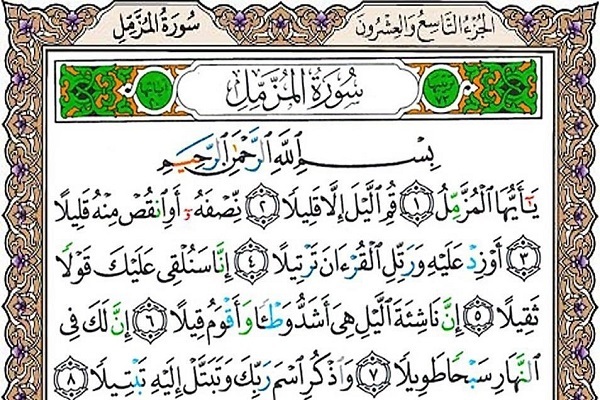 الجزء التاسع والعشرون
سورة المزمل
سُورَةُ الْمُزَّمِّلِ
بِسْمِ اللَّهِ الرَّحْمَٰنِ الرَّحِيمِ
يَٰٓأَيُّهَا الْمُزَّمِّلُ ١ قُمِ اللَّيْلَ إِلَّا قَلِيلًا ٢ نِّصْفَهُۥٓ أَوِ انقُصْ مِنْهُ قَلِيلًا
٣ أَوْ زِدْ عَلَيْهِ وَرَتِّلِ الْقُرْءَانَ تَرْتِيلًا ٤ إِنَّا سَنُلْقِي عَلَيْكَ قَوْلًا
ثَقِيلًا ٥ إِنَّ نَاشِئَةَ اللَّيْلِ هِيَ أَشَدُّ وَطْـًٔا وَأَقْوَمُ قِيلًا ٦ إِنَّ لَكَ فِي
النَّهَارِ سَبْحًا طَوِيلًا ٧ وَاذْكُرِ اسْمَ رَبِّكَ وَتَبَتَّلْ إِلَيْهِ تَبْتِيلًا ٨